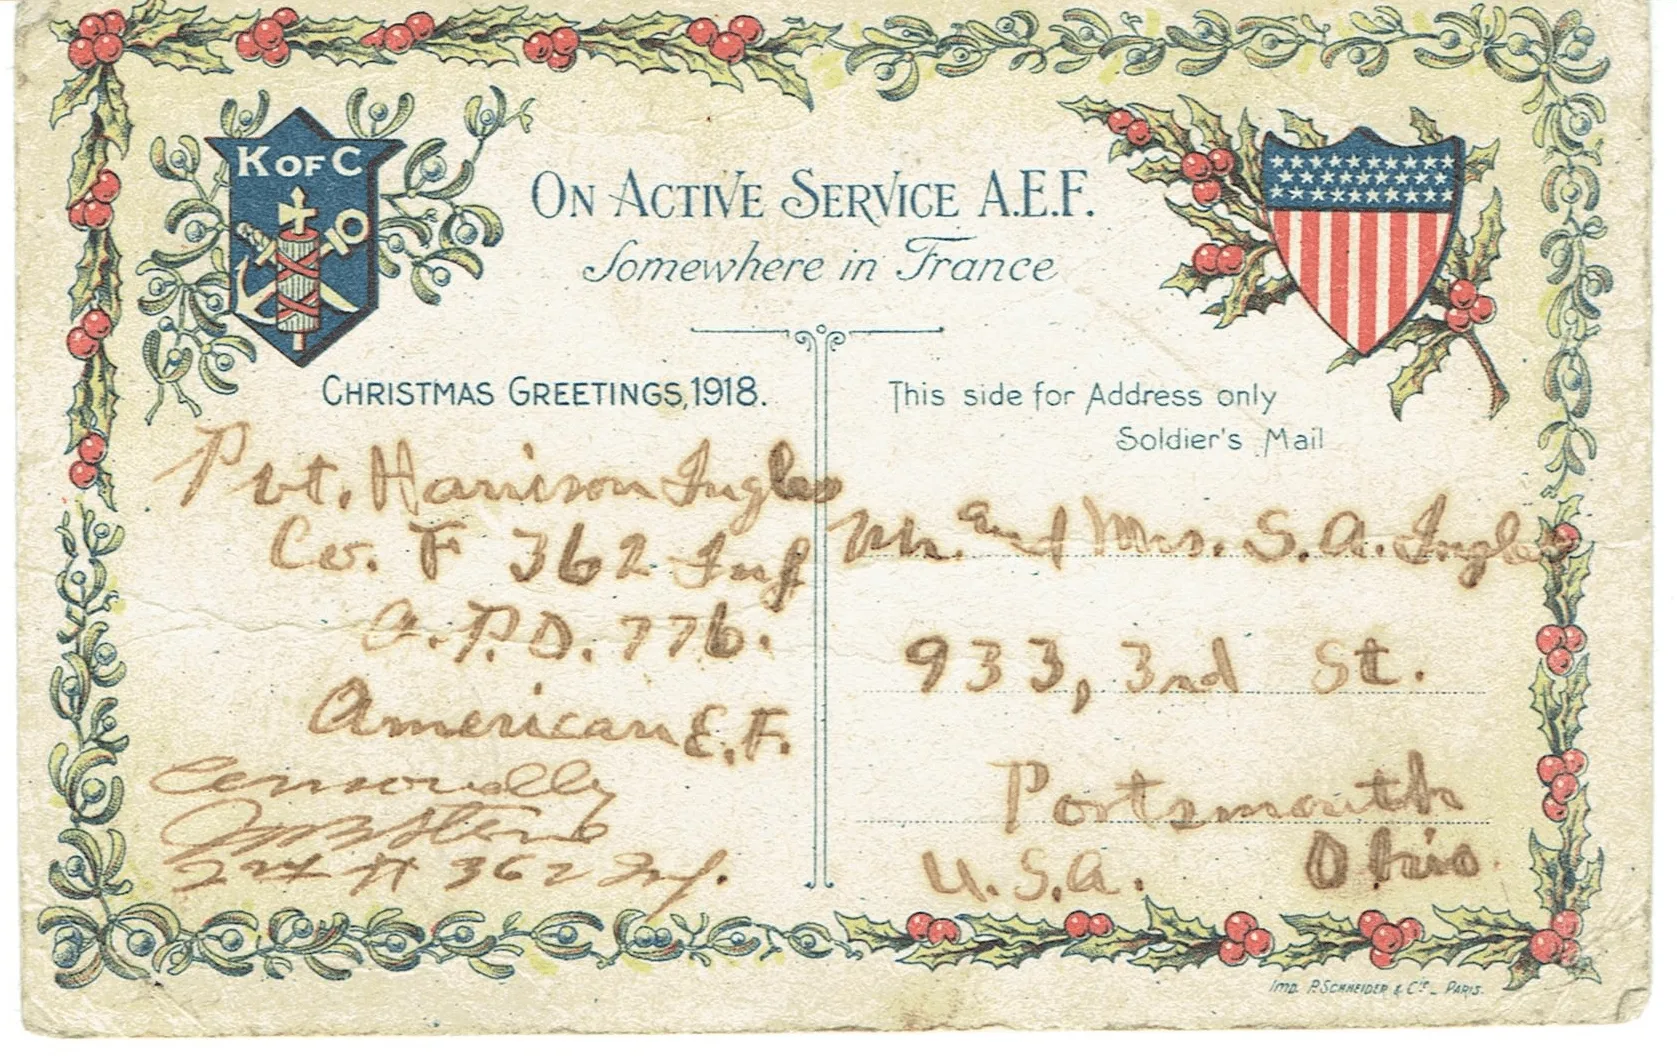 K OF C
ON ACTIVE SERVICE A.E.F.
Somewhere in France
CHRISTMAS GREETINGS, 1918.
Pvt. Harrison Ingles
Co. F 362 Inf
A.P.O. 776.
American E.F.
This side for Address only
Soldier's Mail
Mr. and Mrs. S. A. Ingles
933, 3rd St.
Portsmouth
Ohio.
U.S.A.
362 Inf.
Imp. P. SCHNEIDER & Cie _ PARIS.